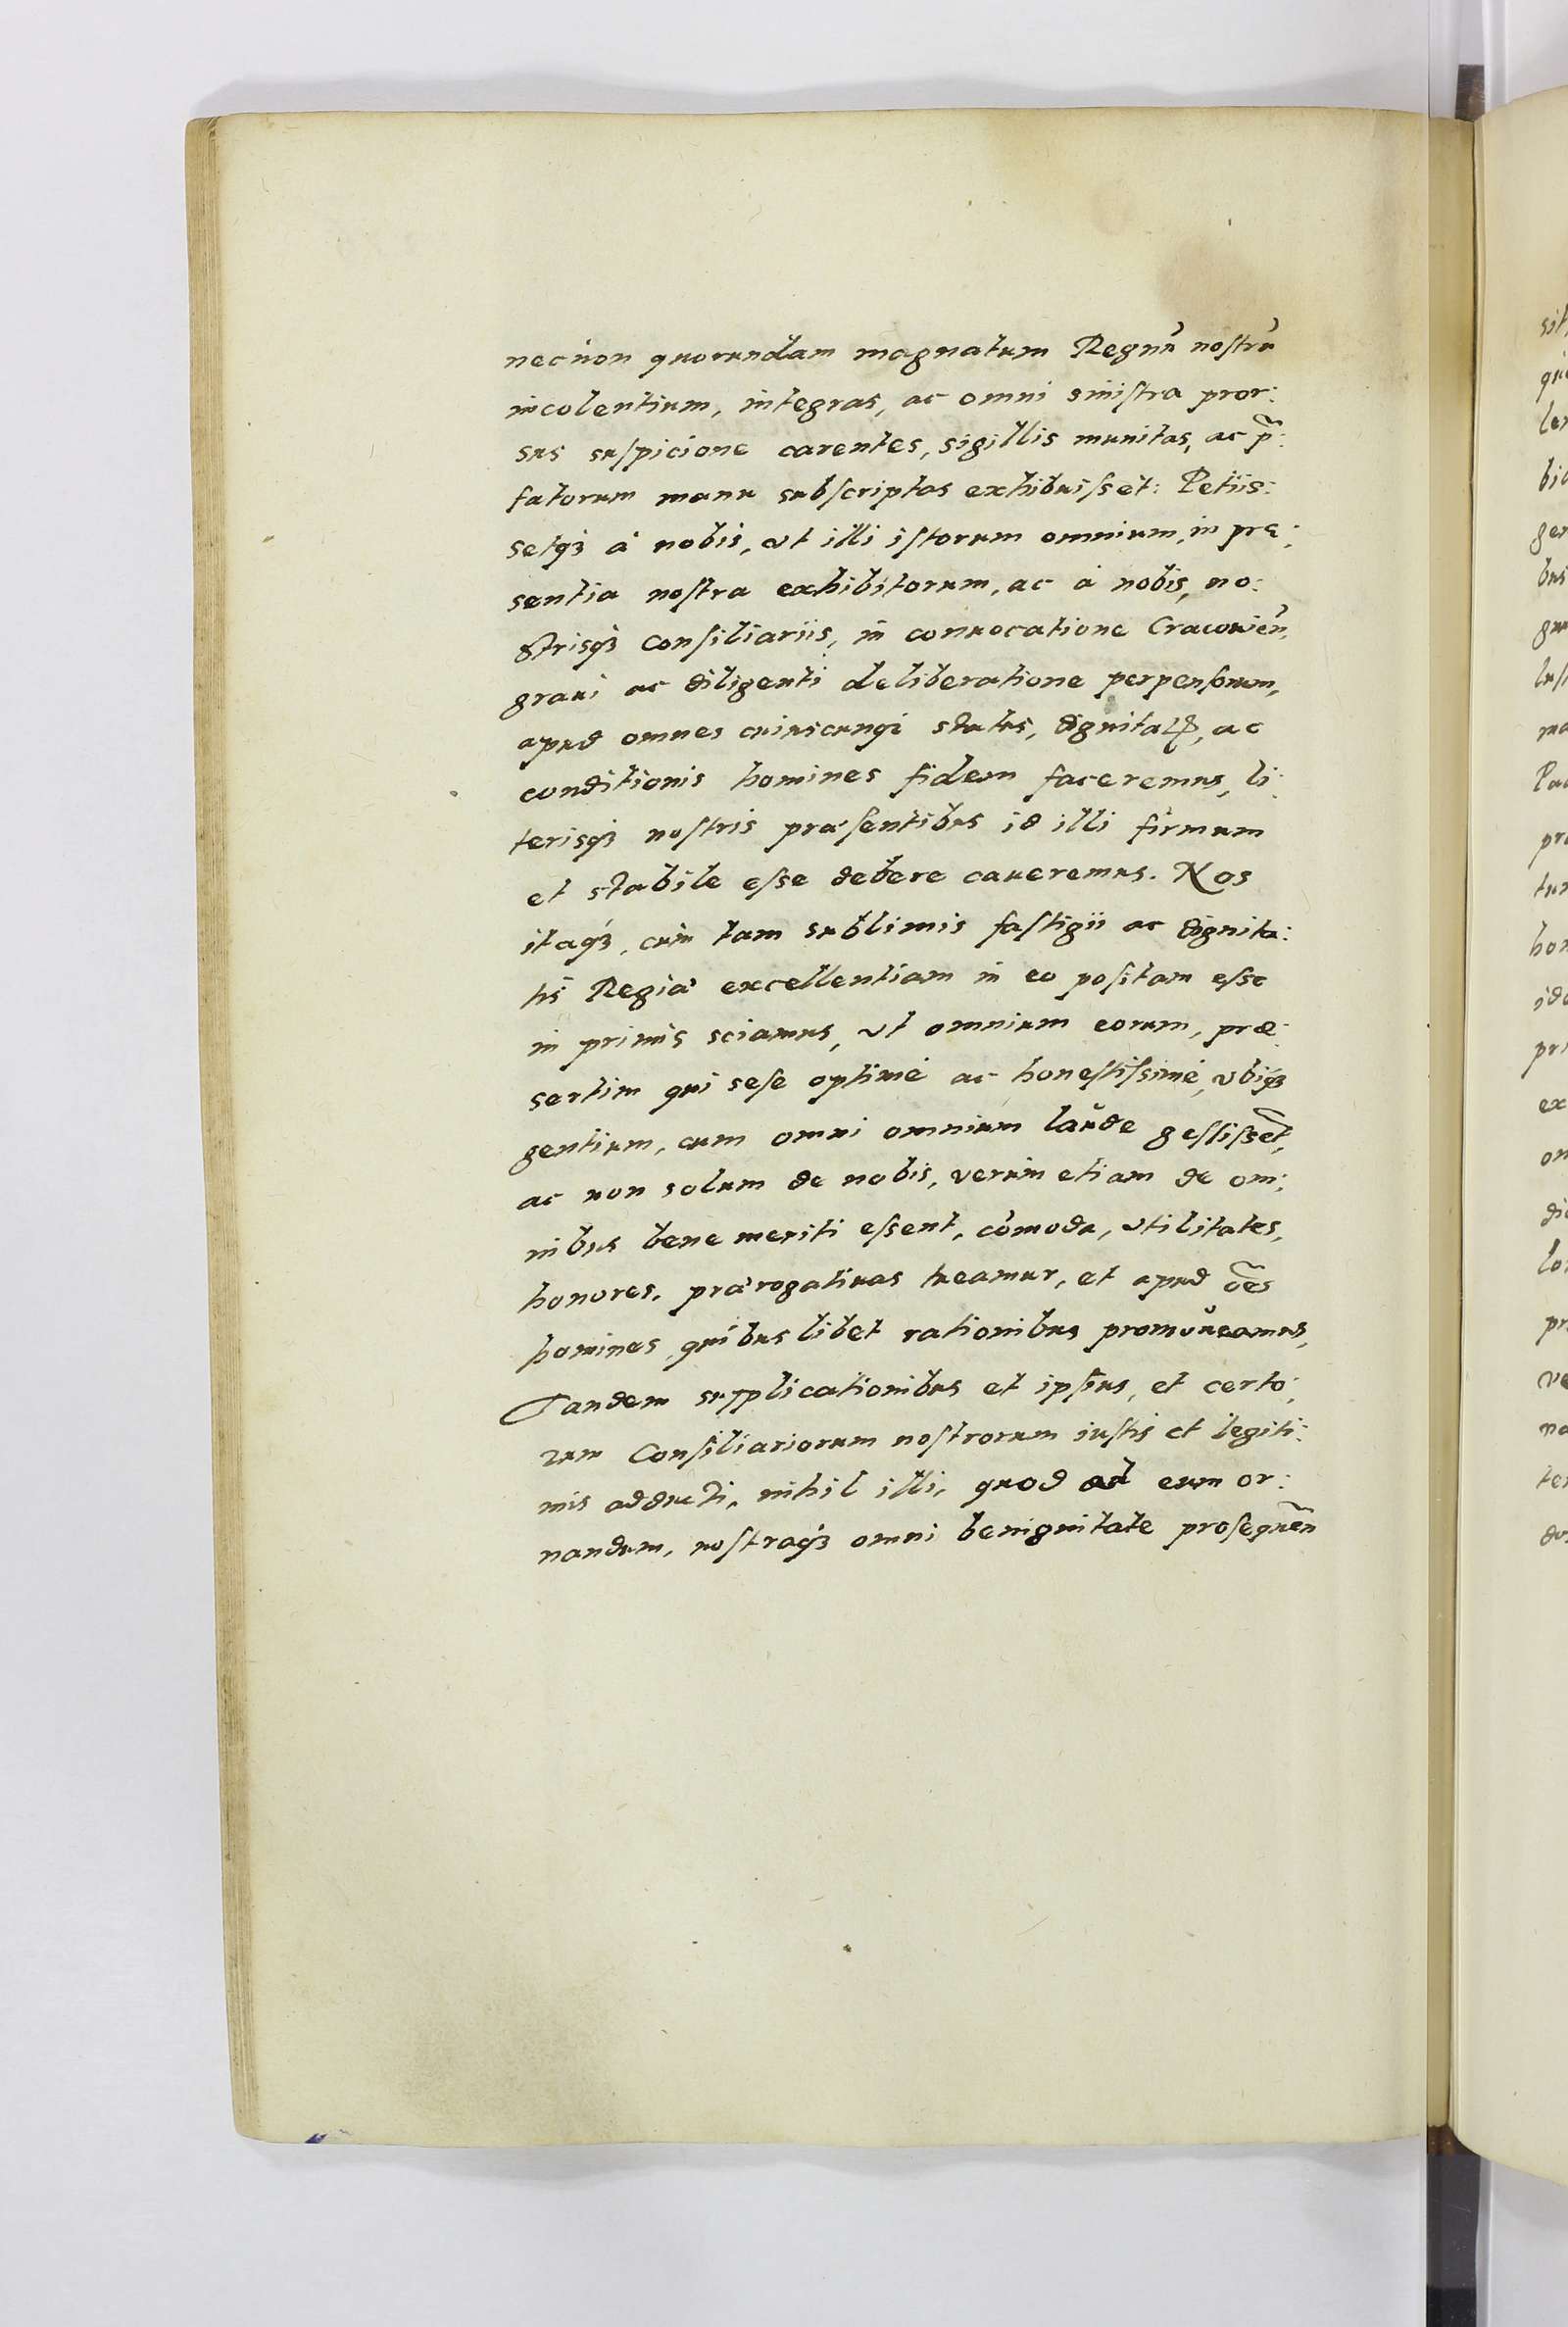 necnon quorundam magnatum Regnũ nostrũ
incolentium, integras, ac omni sinistra pror:
sus suspicione carentes, sigillis munitas, ac p̃:
fatorum manu subscriptas exhibuisset: Petiis:
setq́ꝫ à nobis, vt illi istorum omnium, in præ:
sentia nostra exhibitorum, ac à nobis, no:
strisq́ꝫ consiliariis, in conuocatione Cracouieñ,
graui ac diligenti deliberatione perpensorum,
apud omnes cuiuscunqꝫ status, dignitatꝭ, ac
conditionis homines fidem faceremus, li:
terisq́ꝫ nostris præsentibus id illi firmum
et stabile esse debere caueremus. Nos
itaq́ꝫ, cùm tam sublimis fastigii ac dignita:
tis Regiæ excellentiam in eo positam esse
in primis sciamus, vt omnium eorum, præ:
sertim qui sese optimè ac honestissimè, vbiq́ꝫ
gentium, cum omni omnium laude gessisset̃,
ac non solum de nobis, verùm etiam de om:
nibus bene meriti essent, cõmoda, vtilitates,
honores, prærogatiuas tueamur, et apud oẽs
homines, quibuslibet rationibus promoueamus,
Tandem supplicationibus et ipsius, et certo:
rum Consiliariorum nostrorum iustis et legiti:
mis adducti, nihil illi, quod ad eum or:
nandum, nostraq́ꝫ omni benignitate prosequeñ